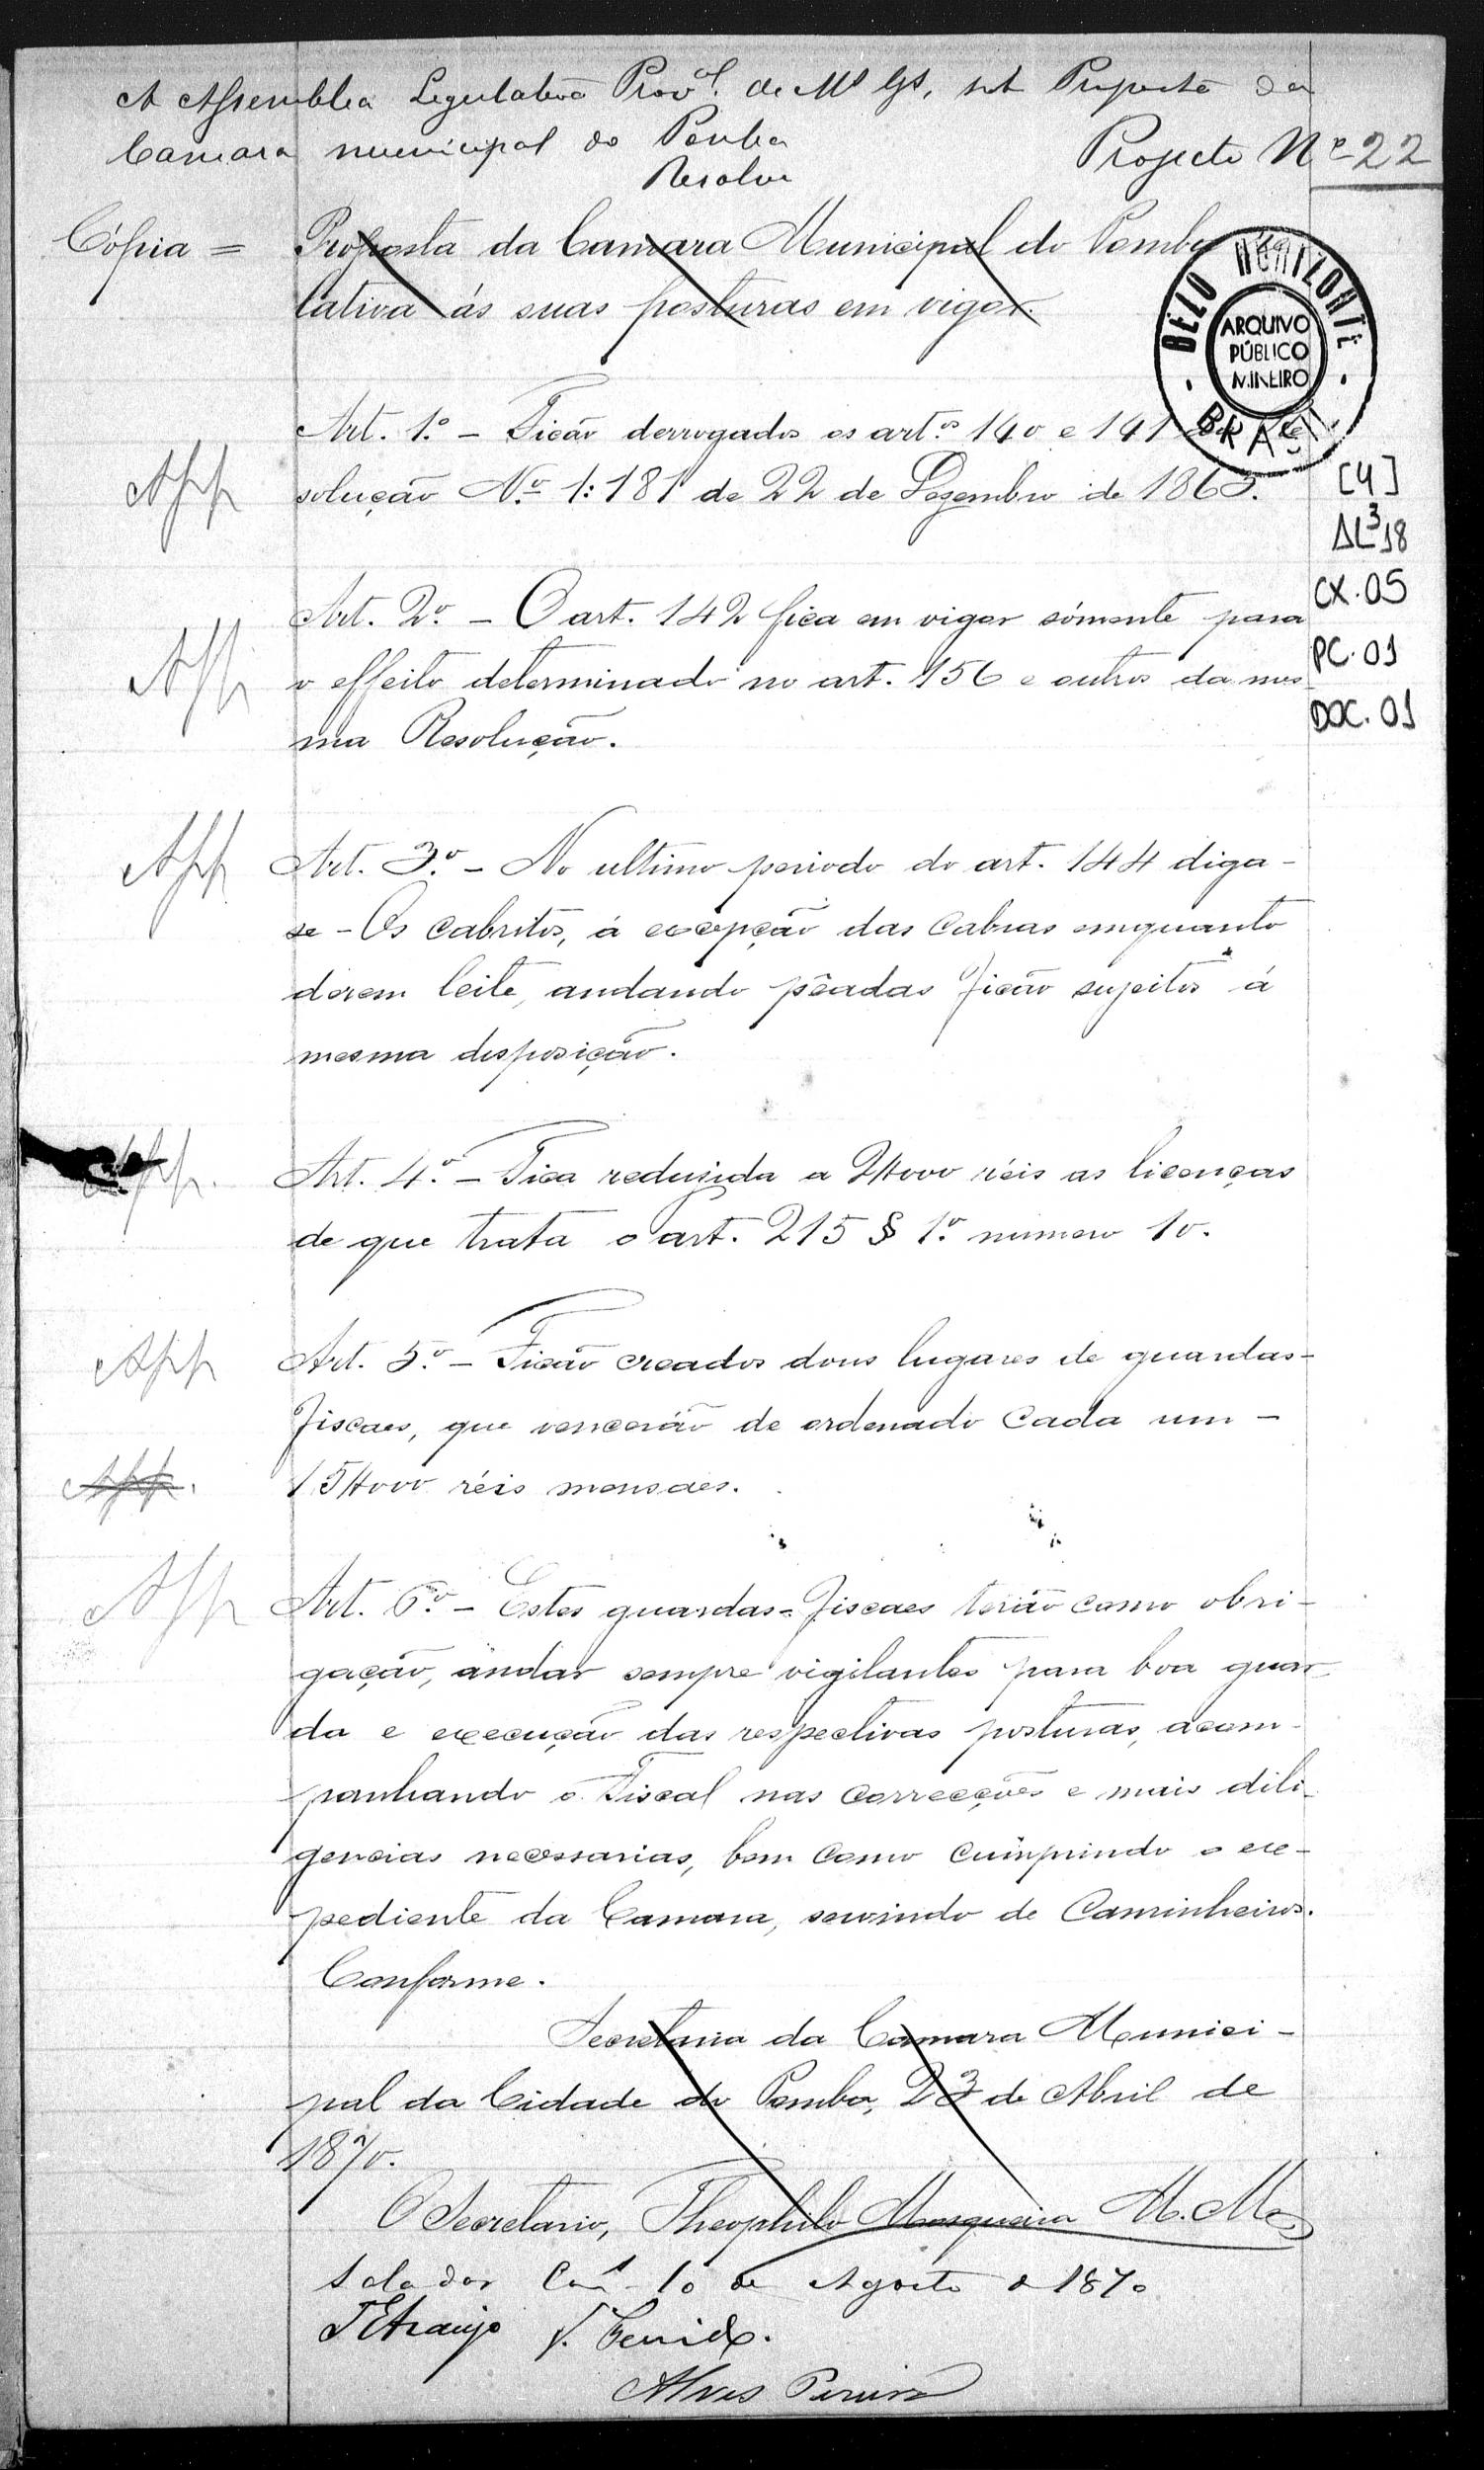 A Assemblea Legislativa Prov.al de Ms Gs, sob Proposta da
Camara municipal do Pomba
Projecto Nº 22
Resolve
Cópia =
Proposta da Camara Municipal do Pomba
lativa ás suas posturas em vigor.
BELO HORIZONTE
ARQUIVO
PÚBLICO
MINEIRO
BRASIL
Art. 1.º - Ficão derrogados os art.os 140 e 141
App
solução Nº 1:181 de 22 de Dezembro de 1865.
[4]
AL³18
CX.05
PC.01
DOC.01
App
Art. 2º. - O art. 142 fica em vigor sómente para
o effeito determinado no art. 156 e outros da mes
ma Resolução.
App
Art. 3º. - No ultimo periodo do art. 144 diga-
se - Os cabritos, á excepção das cabras emquanto
derem leite, andando pêadas ficão sujeitos á
mesma disposição.
App.
Art. 4º. - Fica reduzida a 2$000 réis as licenças
de que trata o art. 215 § 1º. numero 10.
App
Art. 5º. - Ficão creados dous lugares de guardas-
fiscaes, que vencerão de ordenado cada um -
App.
15$000 réis mensaes.
App
Art. 6º. - Estes guardas-fiscaes terão como obri-
gação, andar sempre vigilantes para boa guar
da e execução das respectivas posturas, acom-
panhando o Fiscal nas correcções e mais dili-
gencias necessarias, bem como cumprindo o ex-
pediente da Camara, servindo de Caminheiros.
Conforme.
Secretaria da Camara Munici-
pal da Cidade do Pomba, 23 de Abril de
1870.
O Secretario, Theophilo Mosqueira
Sala das 10 de Agosto de 1870
Araujo
Alves Pereira